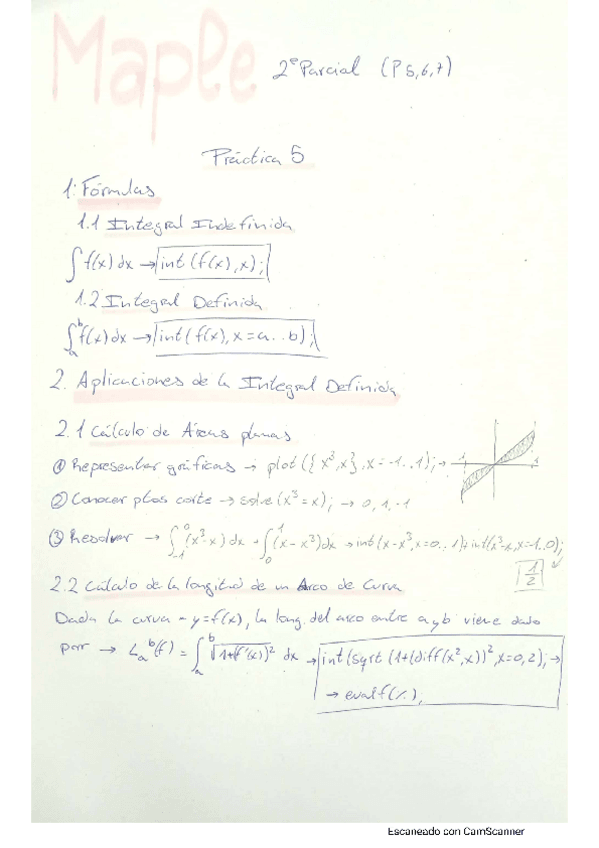 Maple 2º Parcial (P 5,6,7)
Práctica 5
1: Fórmulas
1.1 Integral Indefinida
∫ f(x) dx → int (f(x), x);
1.2 Integral Definida
∫ₐᵇ f(x) dx → int (f(x), x=a..b);
2. Aplicaciones de la Integral Definida
2.1 Cálculo de Áreas planas
① Representar gráficas → plot ({x³,x}, x=-1..1); → -1 1
② Conocer ptos corte → solve (x³=x); → 0, 1, -1
③ Resolver → ∫₋₁⁰ (x³-x) dx + ∫₀¹ (x-x³) dx → int(x-x³,x=0..1)+int(x³-x,x=-1..0);
1/2
2.2 Cálculo de la longitud de un Arco de Curva
Dada la curva - y=f(x), la long. del arco entre a y b viene dado
por → Lₐᵇ(f) = ∫ₐᵇ √1+f'(x))² dx → int (sqrt (1+(diff(x²,x))², x=0,2); →
→ evalf(%),
Escaneado con CamScanner